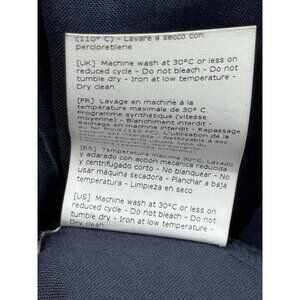 (110° C) - Lavare a secco con
percloretilene
[UK] Machine wash at 30°C or less on
reduced cycle - Do not bleach - Do not
tumble dry - Iron at low temperature -
Dry clean
[FR] Lavage en machine à la
température maximale de 30° C.
programme synthétique (vitesse
moyenne) - Blanchiment interdit -
Séchage en machine interdit - Repassage
au fer froid (110 °C) -
[ES] Temperatura máxima 30°C. Lavado
y aclarado con acción mecánica reducida
y centrifugado corto - No blanquear - No
usar máquina secadora - Planchar a baja
temperatura - Limpieza en seco
[US] Machine wash at 30°C or less on
reduced cycle - Do not bleach - Do not
tumble dry - Iron at low temperature -
Dry clean